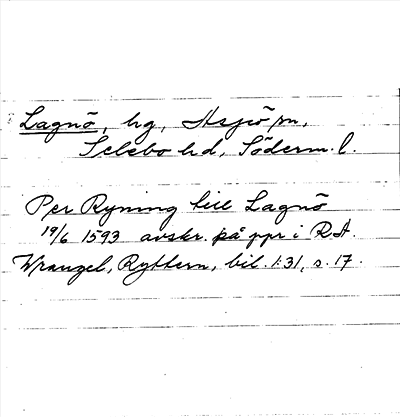 Lagnö, hg, Aspö sn,
Selebo hd, Söderm. l.
Per Ryning till Lagnö
19/6 1593 avskr. på ppr i RA.
Wrangel, Ryttern, bil. 1:31, s. 17.